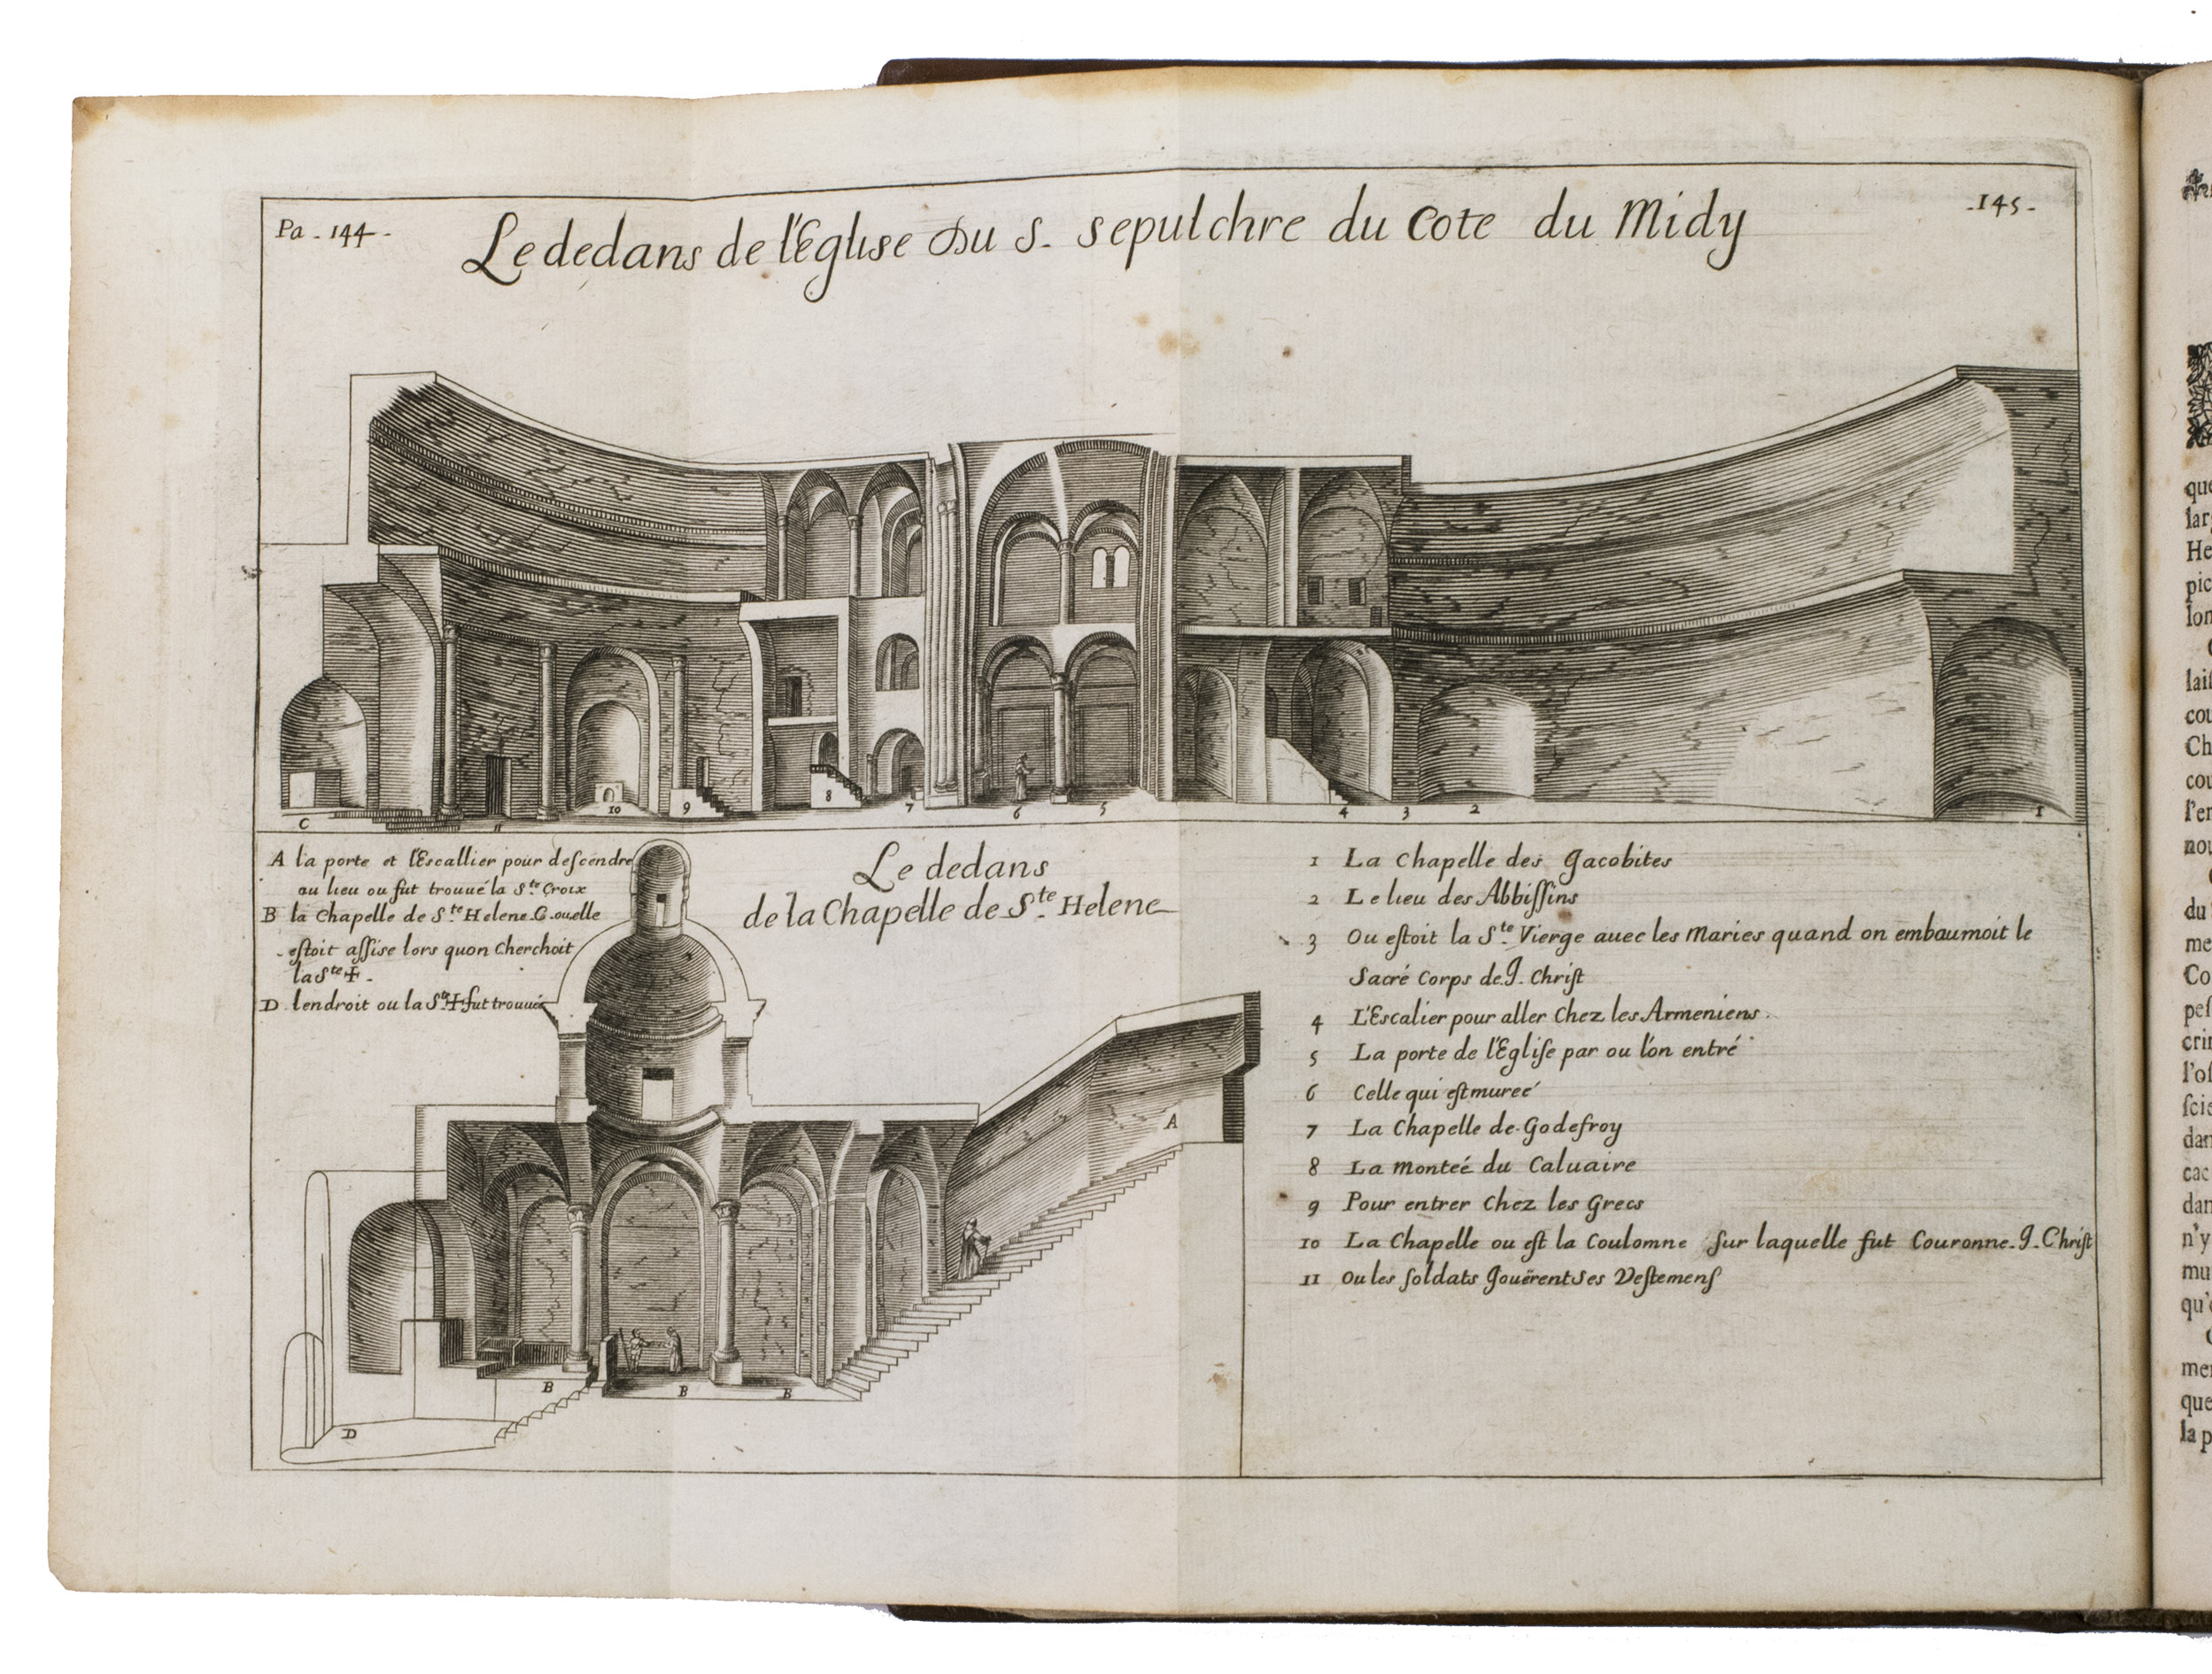 Pa - 144 -
- 145 -
Le dedans de l'Eglise Du S. sepulchre du Cote du Midy
C
11
10
9
8
7
6
5
4
3
2
1
A la porte et l'Escallier pour deſcendre
au lieu ou fut trouué la S.te Croix
B la Chapelle de S.te Helene C. ou elle
eſtoit aſſise lors quon Cherchoit
la Ste ✝ -
D lendroit ou la S.te ✝ fut trouuée
Le dedans
de la Chapelle de S.te Helene
A
B
B
B
D
1 La Chapelle des Jacobites
2 Le lieu des Abbiſſins
3 Ou eſtoit la S.te Vierge auec les Maries quand on embaumoit le
Sacré Corps de J. Chriſt
4 L'Escalier pour aller Chez les Armeniens.
5 La porte de l'Egliſe par ou l'on entré
6 Celle qui eſt mureé
7 La Chapelle de Godefroy
8 La Monteé du Caluaire
9 Pour entrer Chez les Grecs
10 La Chapelle ou eſt la Coulomne ſur laquelle fut Couronne J. Chriſt
11 Ou les ſoldats Jouërent Ses Veſtemenſ
que
lar
He
pic
lon
lai
cou
Ch
cou
l'en
nou
du
me
Co
peſ
crir
l'oſ
ſcie
dan
cac
dan
n'y
mu
qu'
mer
que
la p